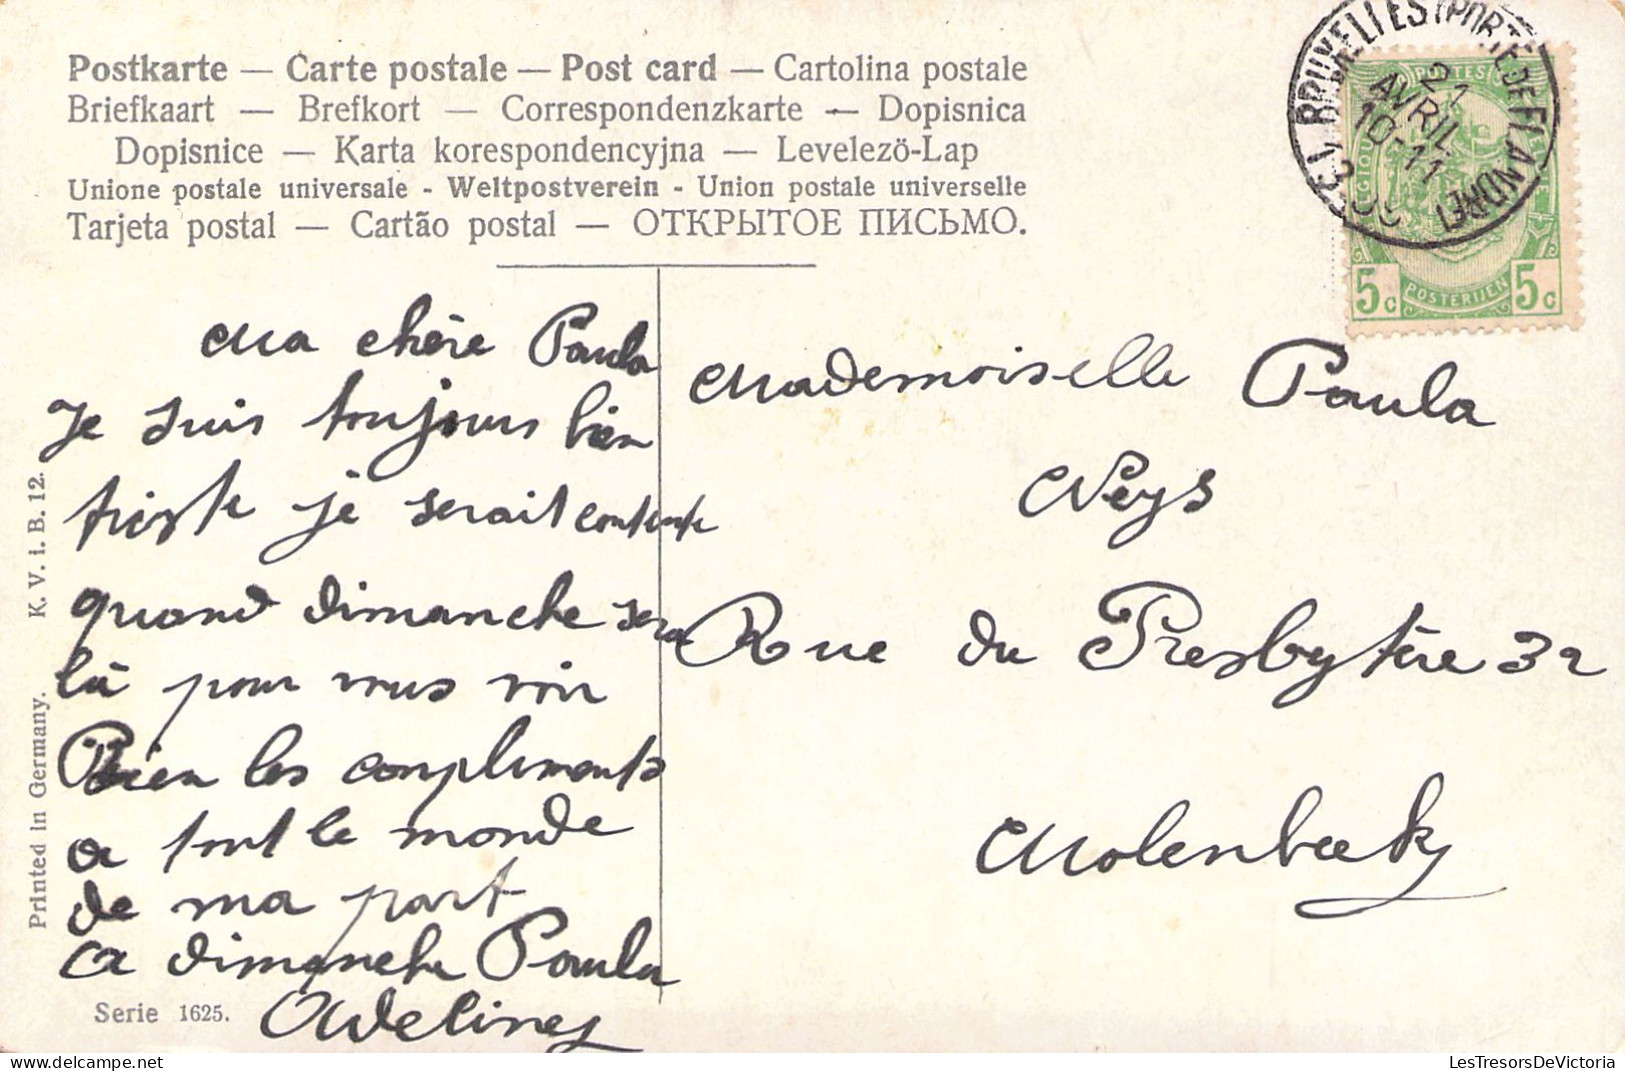 Postkarte — Carte postale — Post card — Cartolina postale
Briefkaart — Brefkort — Correspondenzkarte — Dopisnica
Dopisnice — Karta korespondencyjna — Levelezö-Lap
Unione postale universale - Weltpostverein - Union postale universelle
Tarjeta postal — Cartão postal — ОТКРЫТОЕ ПИСЬМО.
BRUXELLES (PORTE DE FLANDRE)
21
AVRIL
10-11
POSTES
BELGIQUE
5c POSTERIJEN 5c
Ma chère Paula
Je suis toujours bien
triste je serait contente
quand dimanche sera
là pour vous voir
Bien les compliments
a tout le monde
de ma part
a dimanche Paula
Adeline
Mademoiselle Paula
Neys
Rue du Presbytère 32
Molenbeek
Printed in Germany. K. V. i. B. 12.
Serie 1625.
LesTresorsDeVictoria